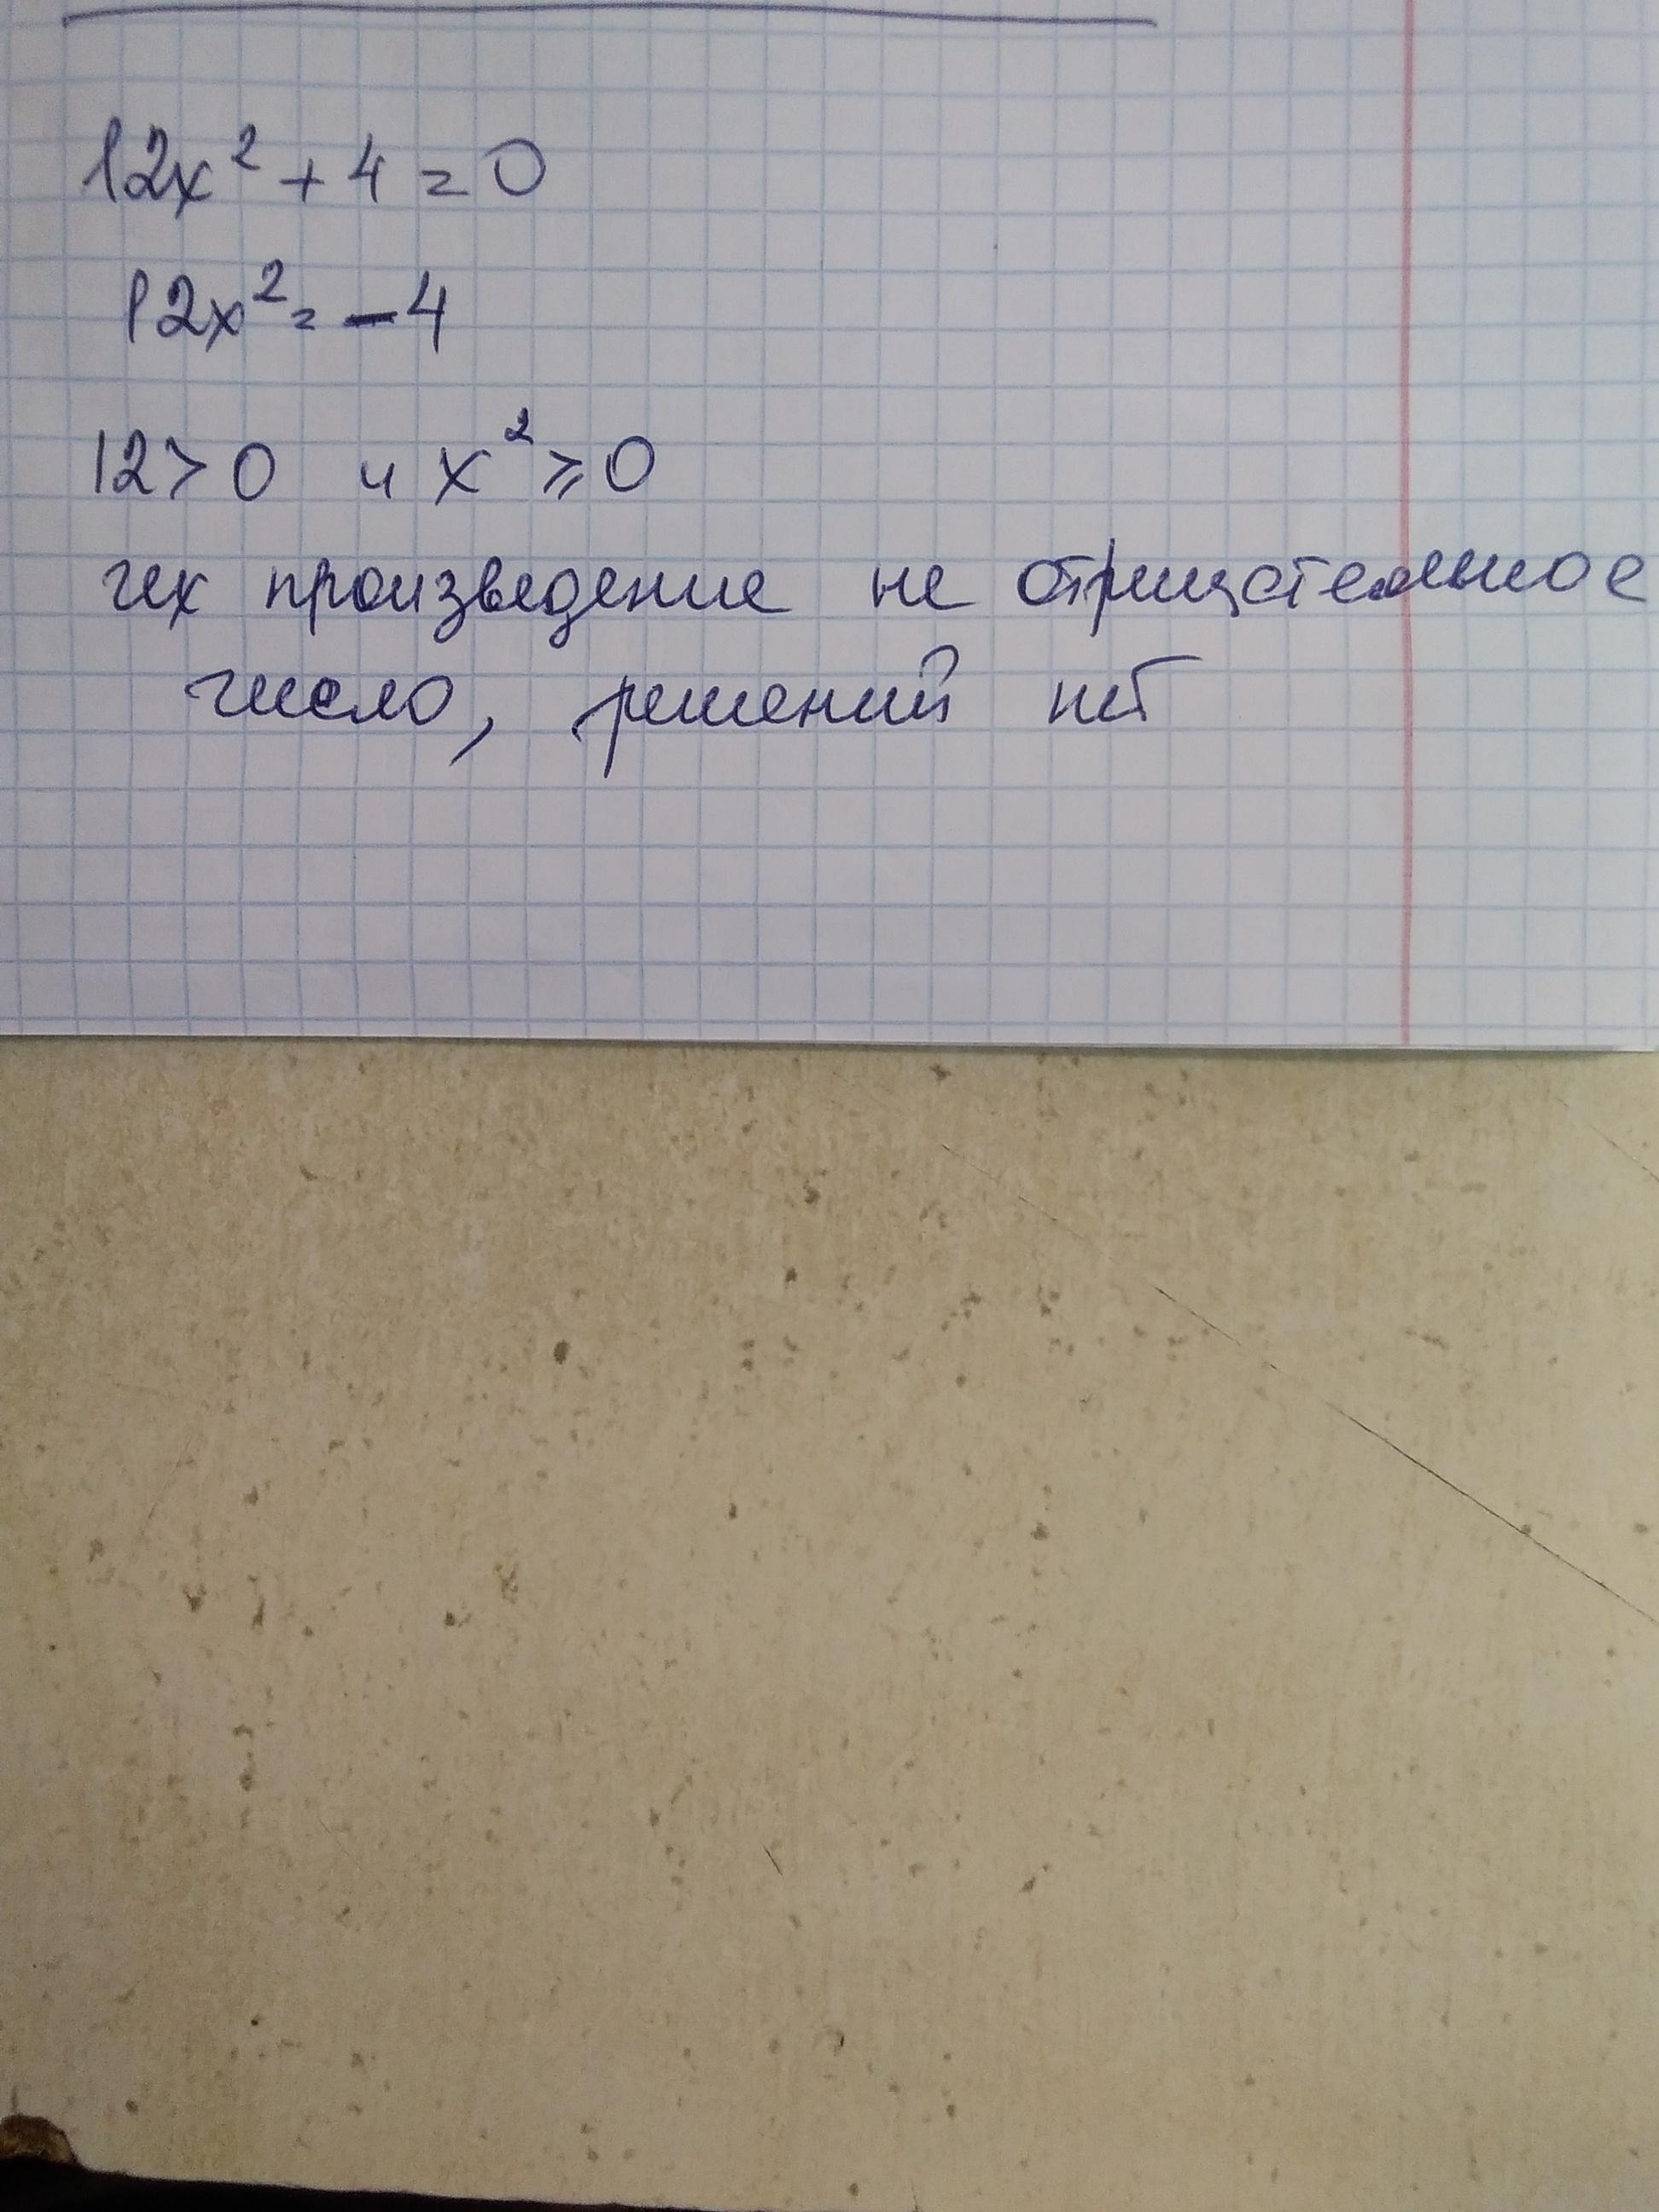 12x² + 4 = 0
12x² = -4
12 > 0 и x² ⩾ 0
их произведение не отрицательное
число, решений нет